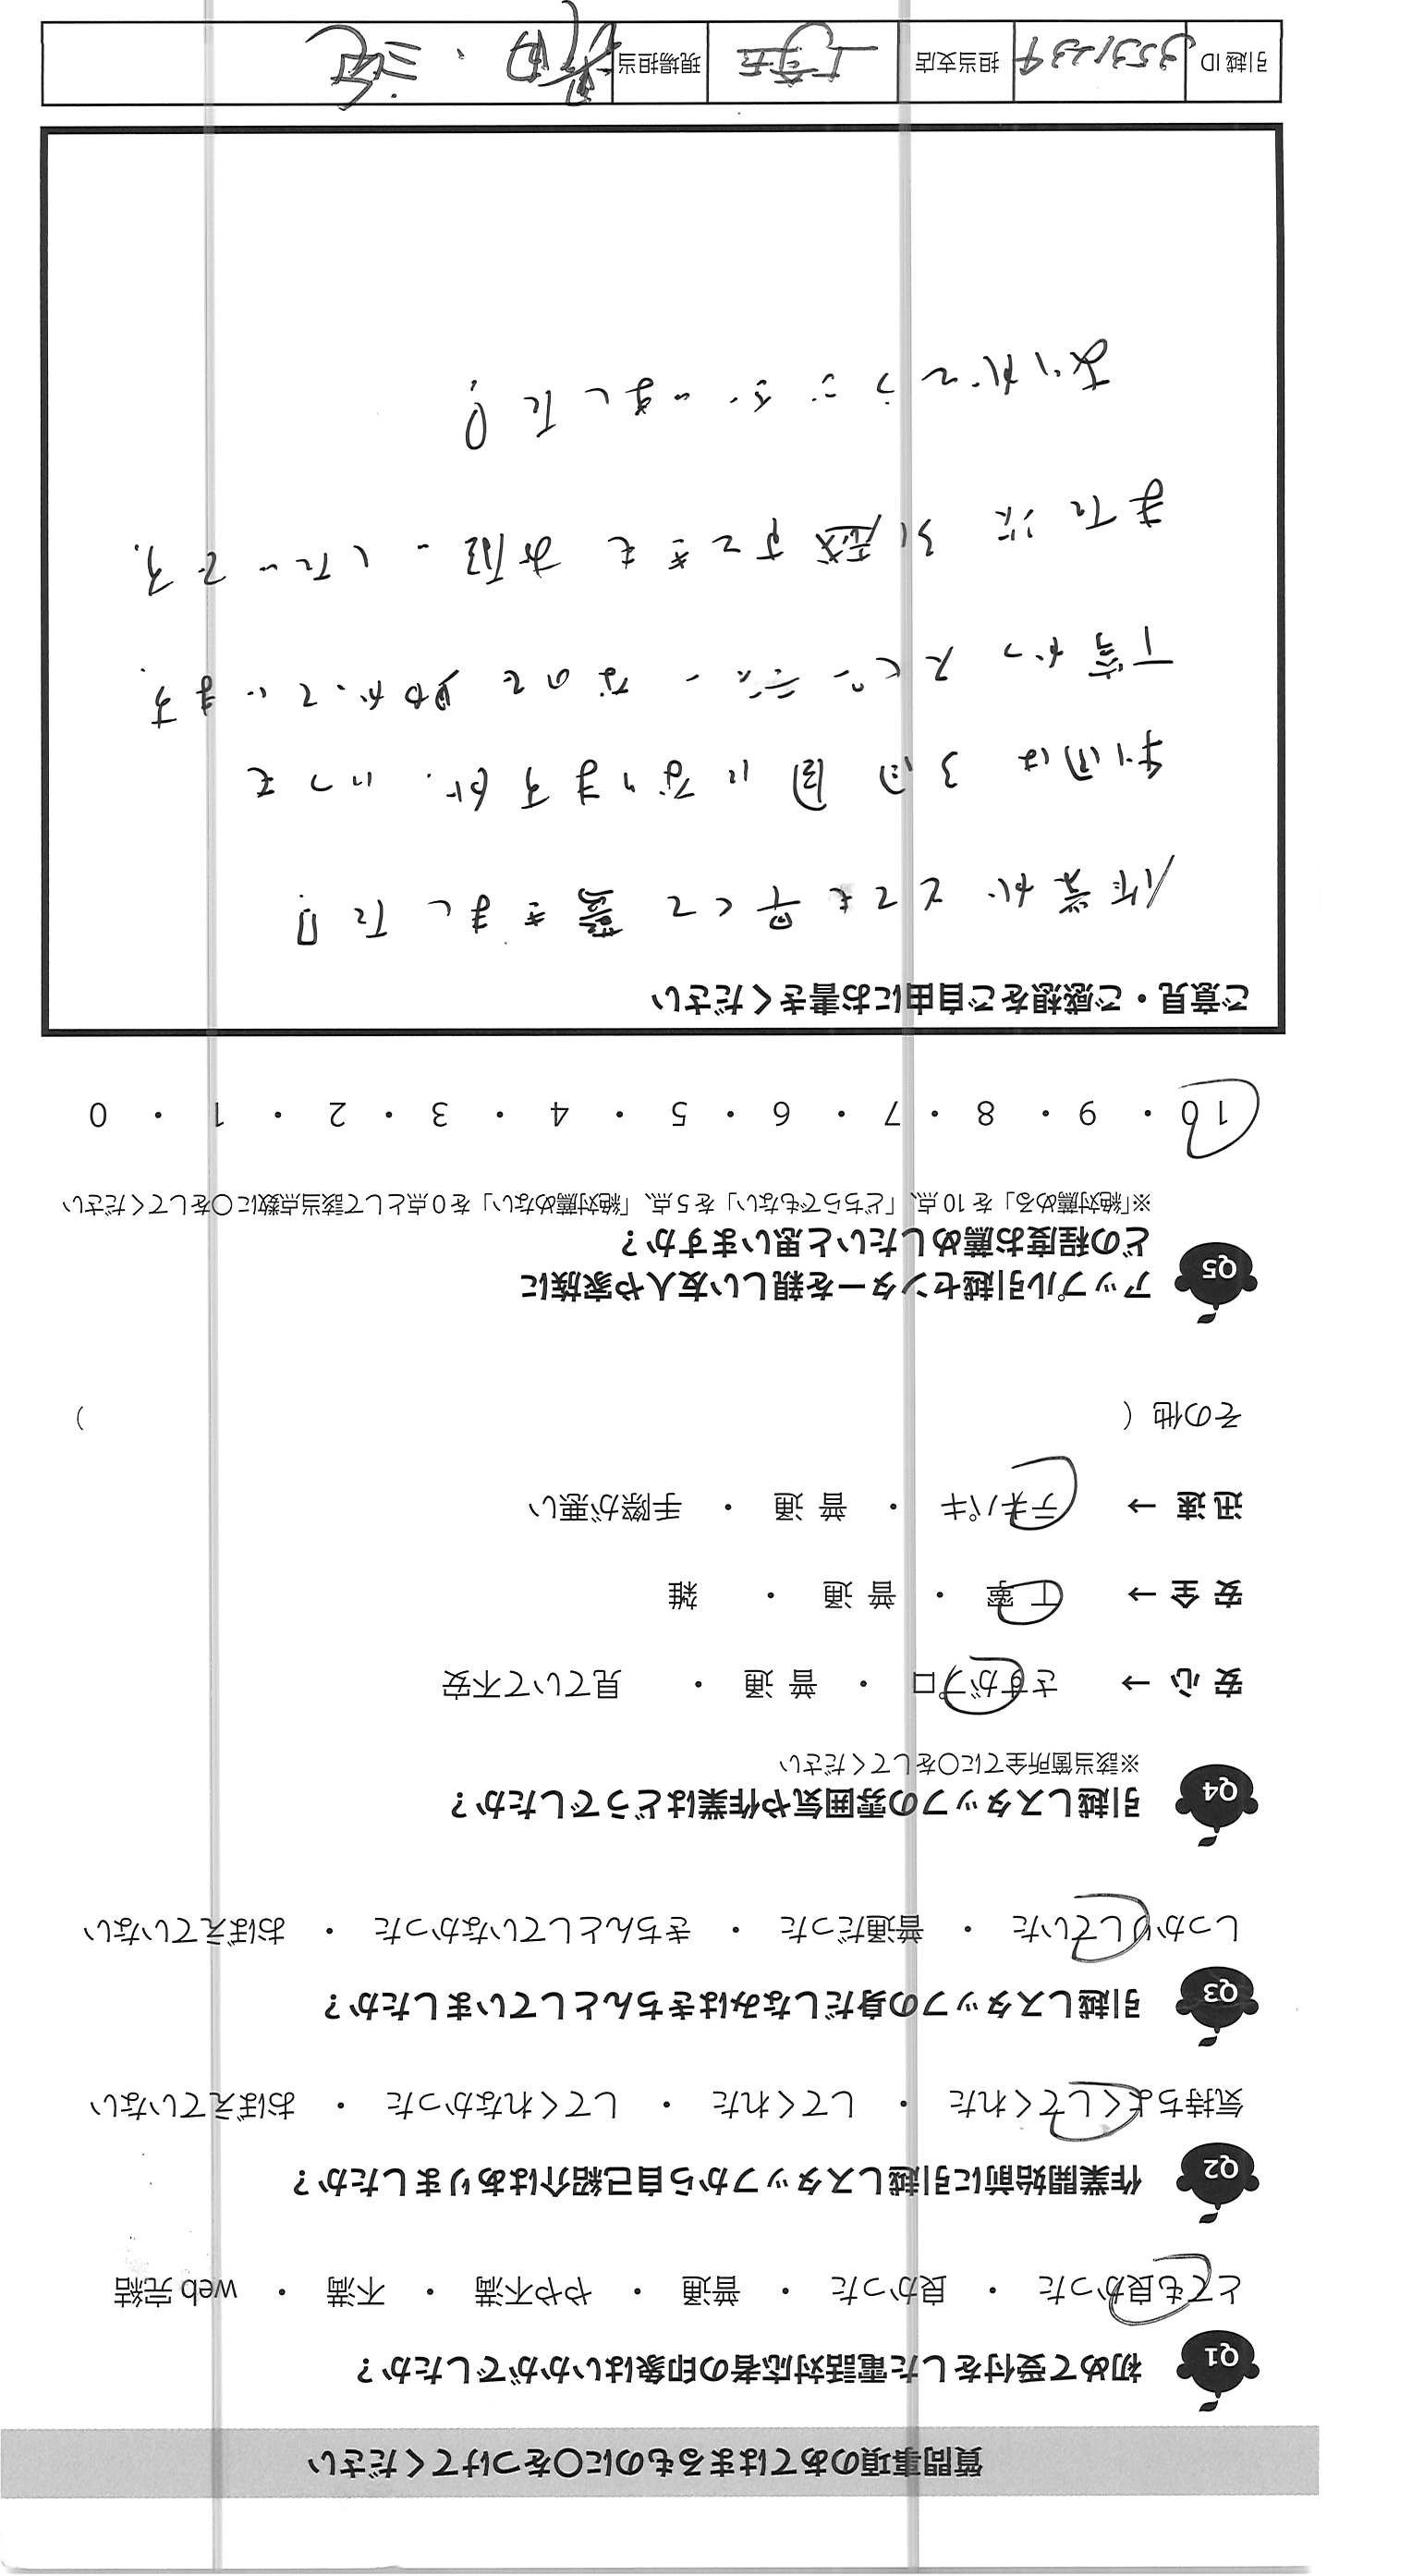 質問事項のあてはまるものに〇をつけてください
Q1 初めて受付をした電話対応者の印象はいかがでしたか？
とても良かった ・ 良かった ・ 普通 ・ やや不満 ・ 不満 ・ web 完結
Q2 作業開始前に引越しスタッフから自己紹介はありましたか？
気持ちよくしてくれた ・ してくれた ・ してくれなかった ・ おぼえていない
Q3 引越しスタッフの身だしなみはきちんとしていましたか？
しっかりしていた ・ 普通だった ・ きちんとしていなかった ・ おぼえていない
Q4 引越しスタッフの雰囲気や作業はどうでしたか？
※該当箇所全てに〇をしてください
安 心 → さすがプロ ・ 普 通 ・ 見ていて不安
安 全 → 丁 寧 ・ 普 通 ・ 雑
迅 速 → テキパキ ・ 普 通 ・ 手際が悪い
その他（ ）
Q5 アップル引越センターを親しい友人や家族に
どの程度お薦めしたいと思いますか？
※「絶対薦める」を 10 点、「どちらでもない」を 5 点、「絶対薦めない」を 0 点として該当点数に〇をしてください
10 ・ 9 ・ 8 ・ 7 ・ 6 ・ 5 ・ 4 ・ 3 ・ 2 ・ 1 ・ 0
ご意見・ご感想をご自由にお書きください
作業がとても早くて驚きました!!
利用は 3回目になりますが、いつも
丁寧かつスピーディーなので助かっています。
また次引越すときもお願いしたいです。
ありがとうございました!
引越 ID 3531239 担当支店 現場担当